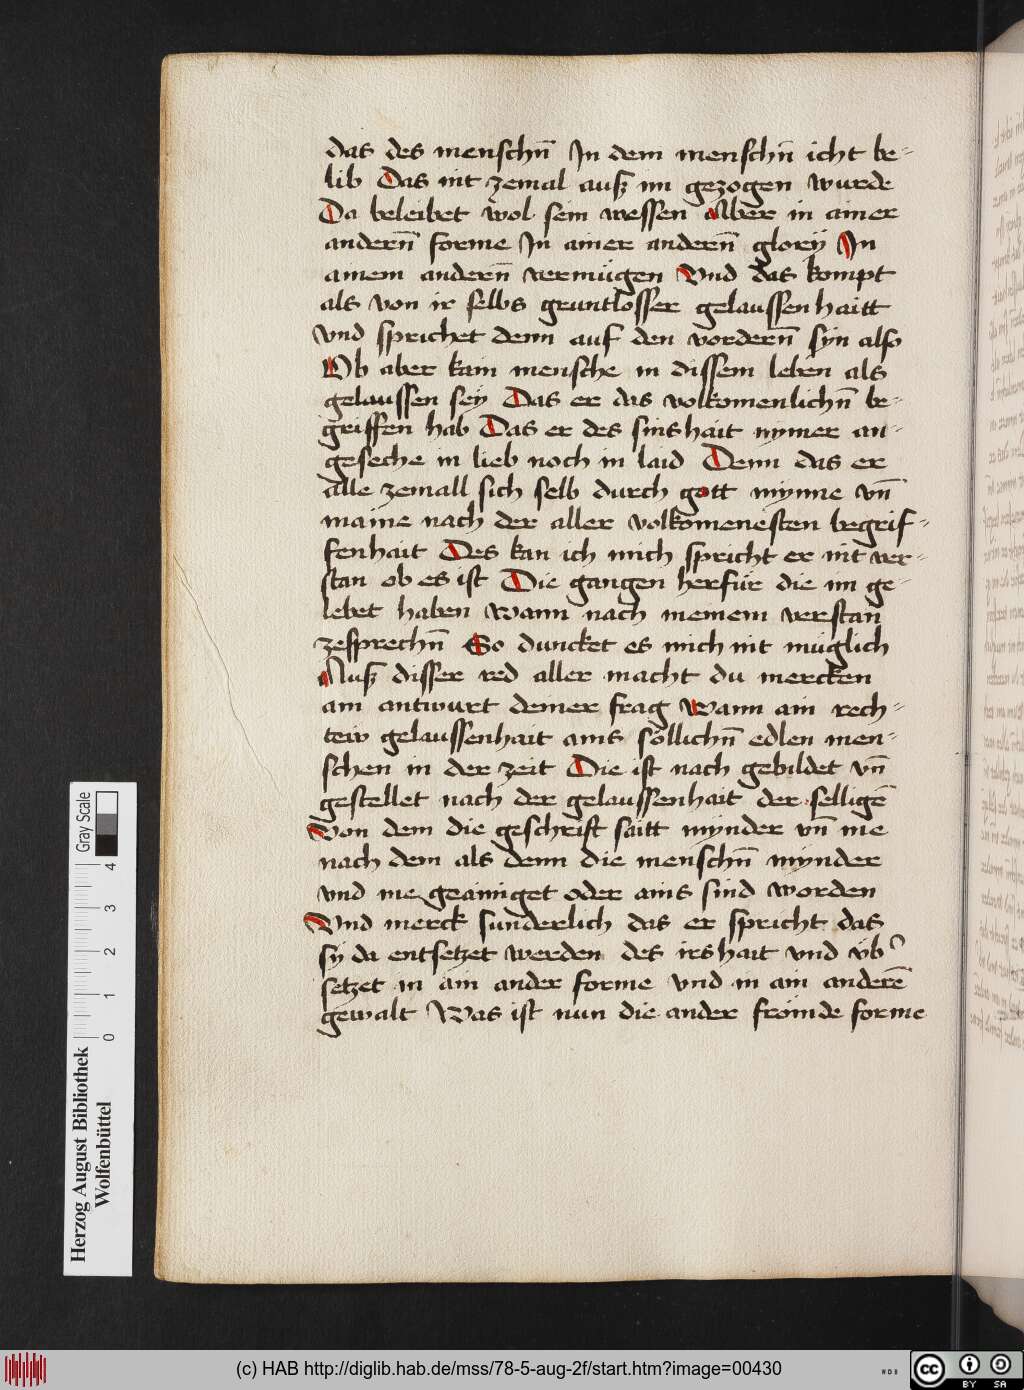 das des menschn̄ In dem menschn̄ icht be-
lib Das nit zemal ausz im gezogen wurde
Da beleibet wol sein wessen Aber in ainer
andern̄ forme In ainer andern̄ glorÿ In
ainem andern̄ vermügen Vnd das kompt
als von ir selbs gruntlosser gelaussenhaitt
vnd sprichet denn auf den vordern̄ sÿn also
Ob aber kain mensche in dissem leben als
gelaussen seÿ Das er das volkomenlichn̄ be-
griffen hab Das er des sinshait nymer an-
geseche in lieb noch in laid Denn das er
alle zemall sich selb durch gott mynne vn̄
maine nach der aller volkomenesten begrif-
fenhait Des kan ich mich spricht er nit ver-
stan ob es ist Die gangen herfür die im ge-
lebet haben wann nach meinem verstan
zesprechn̄ So duncket es mich nit müglich
Ausz disser red aller macht du mercken
ain antwurt deiner frag Wann ain rech-
tew gelaussenhait ains söllichn̄ edlen men-
schen in der zeit Die ist nach gebildet vn̄
gestellet nach der gelaussenhait der selligē
Von dem die geschrift saitt mÿnder vn̄ me
nach dem als denn die menschn̄ mÿnder
vnd me geainiget oder ains sind worden
Vnd merck sunderlich das er spricht das
sÿ da entsetzet werden des irshait vnd v̈b̉
setzet in ain ander forme vnd in ain anderē
gewalt Was ist nun die ander fröinde forme
Herzog August Bibliothek
Wolfenbüttel
0 1 2 3 4
Gray Scale
(c) HAB http://diglib.hab.de/mss/78-5-aug-2f/start.htm?image=00430
WDB
cc BY SA